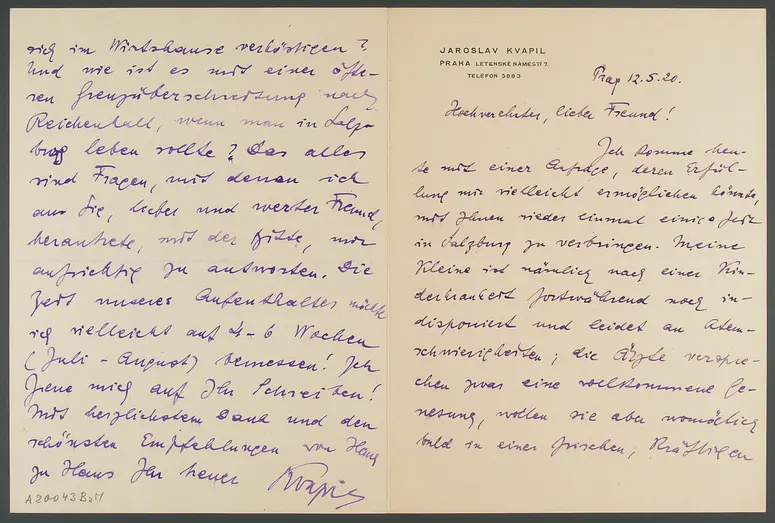 JAROSLAV KVAPIL
PRAHA LETENSKÉ NÁMĚSTÍ 7.
TELEFON 3883
Prag 12.5.20.
Hochverehrter, lieber Freund!
Ich komme heu-
te mit einer Anfrage, deren Erfül-
lung mir vielleicht ermöglichen könnte,
mit Ihnen wieder einmal einige Zeit
in Salzburg zu verbringen. Meine
Kleine ist nämlich nach einer Kin-
derkrankheit fortwährend noch in-
disponiert und leidet an Atem-
schwierigkeiten; die Ärzte verspre-
chen zwar eine vollkommene Ge-
nesung, wollen sie aber womöglich
bald in einer frischen, kräftigen
sich im Wirtshause verköstigen?
Und wie ist es mit einer öfte-
ren Grenzüberschreitung nach
Reichenhall, wenn man in Salz-
burg leben wollte? Das alles
sind Fragen, mit denen ich
an Sie, lieber und werter Freund,
herantrete, mit der Bitte, mir
aufrichtig zu antworten. Die
Zeit unseres Aufenthaltes möchte
ich vielleicht auf 4-6 Wochen
(Juli - August) bemessen! Ich
freue mich auf Ihr Schreiben!
Mit herzlichstem Dank und den
schönsten Empfehlungen von Haus
zu Haus Ihr treuer Kvapil
A20043BaM